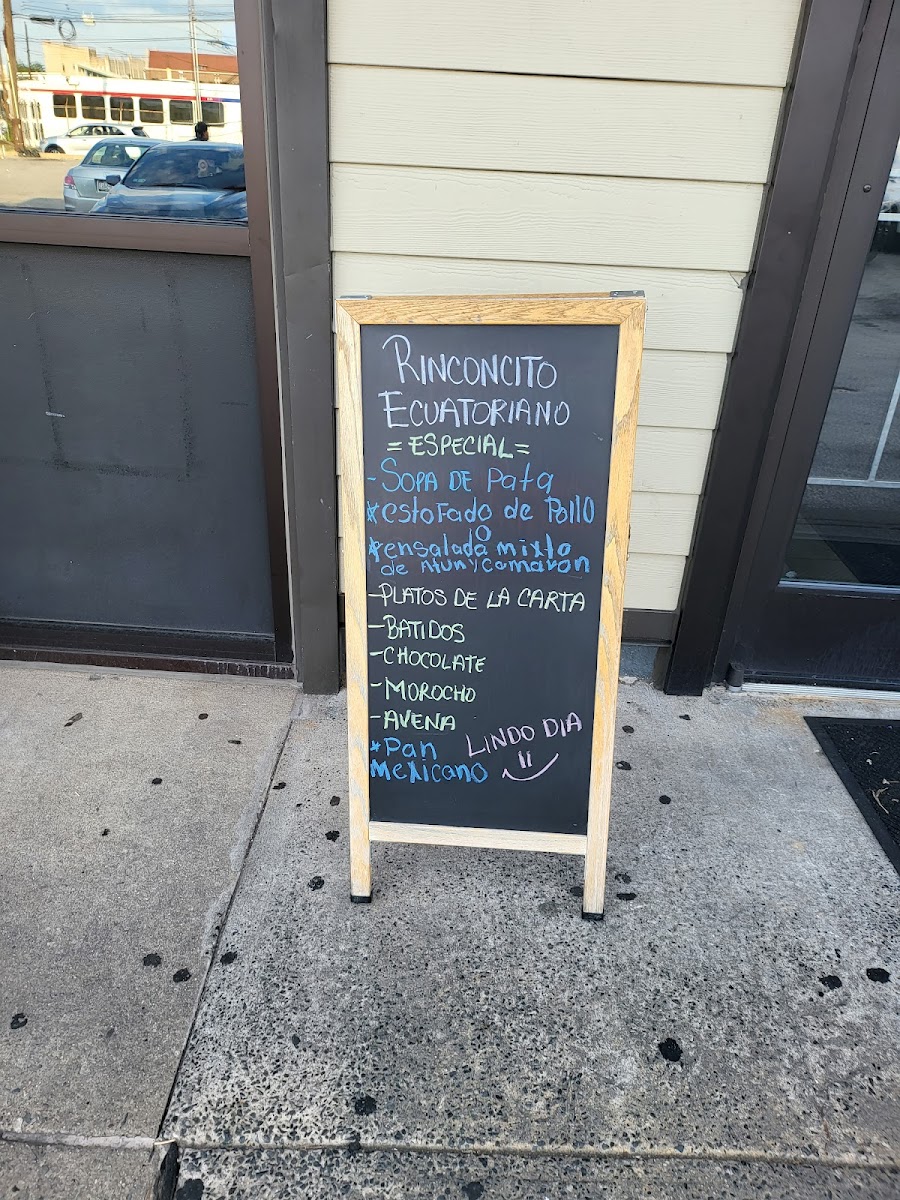 RINCONCITO
ECUATORIANO
= ESPECIAL =
- SOPA DE Pata
* estofado de Pollo
o
* ensalada mixto
de Atun y camaron
- PLATOS DE LA CARTA
- BATIDOS
- CHOCOLATE
- MOROCHO
- AVENA
* Pan
Mexicano
LINDO DIA